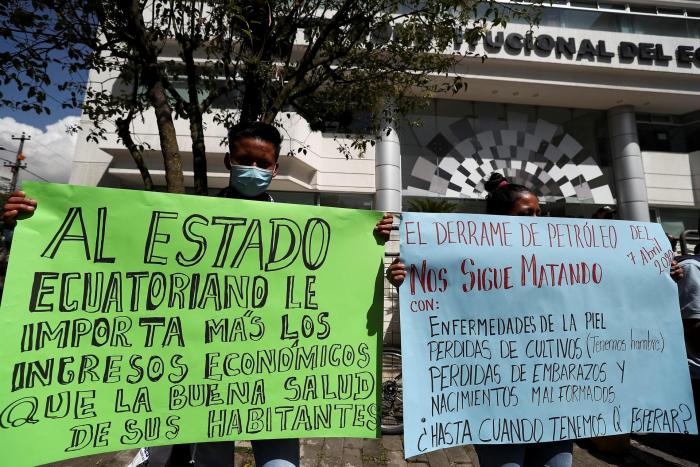 TUCIONAL DEL E
AL ESTADO
ECUATORIANO LE
IMPORTA MÁS LOS
INGRESOS ECONÓMICOS
QUE LA BUENA SALUD
DE SUS HABITANTES
EL DERRAME DE PETRÓLEO DEL
7 Abril
NOS SIGUE MATANDO
CON:
ENFERMEDADES DE LA PIEL
PERDIDAS DE CULTIVOS (Tenemos hambre)
PERDIDAS DE EMBARAZOS Y
NACIMIENTOS MALFORMADOS
¿HASTA CUANDO TENEMOS Q' ESPERAR?